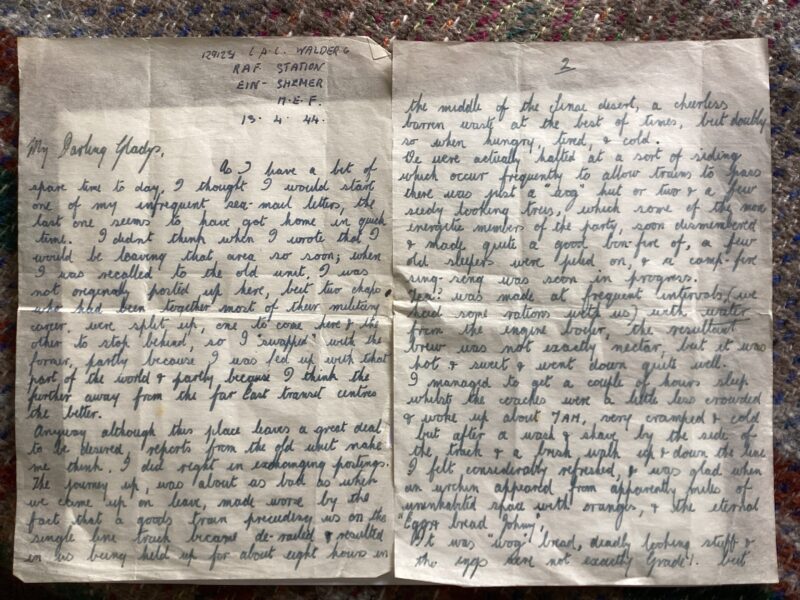 1291251 L.A.C. WALDER G
RAF STATION
EIN-SHEMER
M.E.F.
13. 4. 44.
My Darling Gladys,
As I have a bit of
spare time to day, I thought I would start
one of my infrequent sea-mail letters, the
last one seems to have got home in quick
time. I didnt think when I wrote that I
would be leaving that area so soon; when
I was recalled to the old unit, I was
not originally posted up here, but two chaps
who had been together most of their military
career, were split up, one to come here & the
other to stop behind, so I swapped with the
former, partly because I was fed up with that
part of the world & partly because I think the
further away from the far East transit centres
the better.
Anyway although this place leaves a great deal
to be desired, reports from the old unit make
me think, I did right in exchanging postings.
The journey up, was about as bad as when
we came up on leave, made worse by the
fact that a goods train preceeding us on the
single line track became de-railed & resulted
in us being held up for about eight hours in
2
the middle of the Sinai desert, a cheerless
barren waste at the best of times, but doubly
so when hungry, tired, & cold.
We were actually halted at a sort of siding
which occur frequently to allow trains to pass
there was just a "wog" hut or two & a few
seedy looking trees, which some of the more
energetic member of the party, soon dismembered
& made quite a good bon-fire of, a few
old sleepers were piled on, & a camp-fire
sing-song was soon in progress.
Tea: was made at frequent intervals, (we
had some rations with us) with water
from the engine boiler, the resultant
brew was not exactly nectar, but it was
hot & sweet & went down quite well.
I managed to get a couple of hours sleep
whilst the coaches were a little less crowded
& woke up about 7AM, very cramped & cold
but after a wash & shave by the side of
the track & a brisk walk up & down the line
I felt considerably refreshed, & was glad when
an urchin appeared from apparently miles of
uninhabited space with oranges, & the eternal
"Eggs bread Johny",
It was "wog" bread, deadly looking stuff &
the eggs were not exactly Grade 1. but